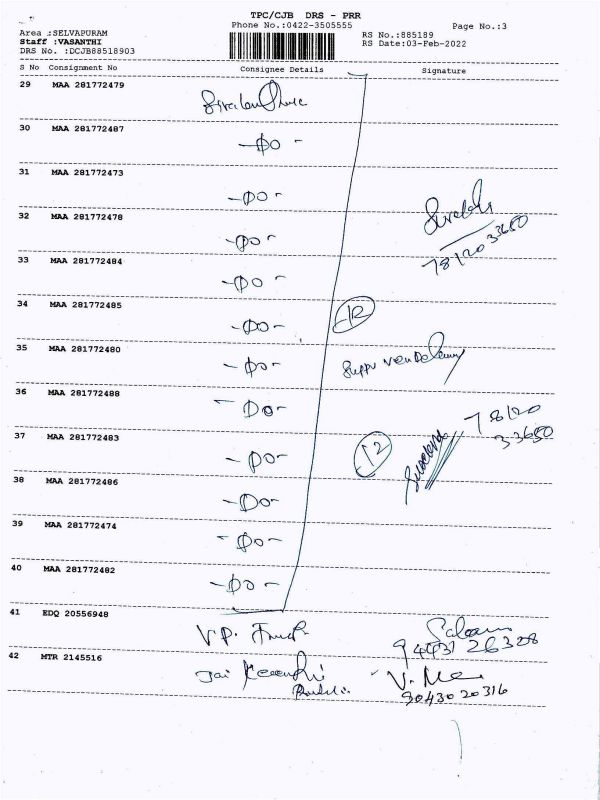 TPC/CJB DRS - PRR
Phone No.:0422-3505555
Page No.:3
Area :SELVAPURAM
Staff :VASANTHI
DRS No. :DCJB88518903
RS No.:885189
RS Date:03-Feb-2022
S No Consignment No Consignee Details Signature
29 MAA 281772479
30 MAA 281772487 -DO-
31 MAA 281772473 -DO-
32 MAA 281772478 -DO-
78120 33650
33 MAA 281772484 -DO-
34 MAA 281772485 -DO- 12
35 MAA 281772480 -DO-
36 MAA 281772488 -DO- 78120 33650
37 MAA 281772483 -DO- 12
38 MAA 281772486 -DO-
39 MAA 281772474 -DO-
40 MAA 281772482 -DO-
41 EDQ 20556948 V.P.
94431 26328
42 MTR 2145516 Jai
90430 20316